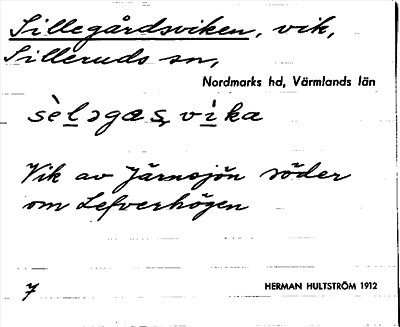 Sillegårdsviken, vik,
Silleruds sn,
Nordmarks hd, Värmlands län
sèl̲əgæṣvì̲ka
Vik av Järnsjön söder
om Lefverhögen
7
HERMAN HULTSTRÖM 1912